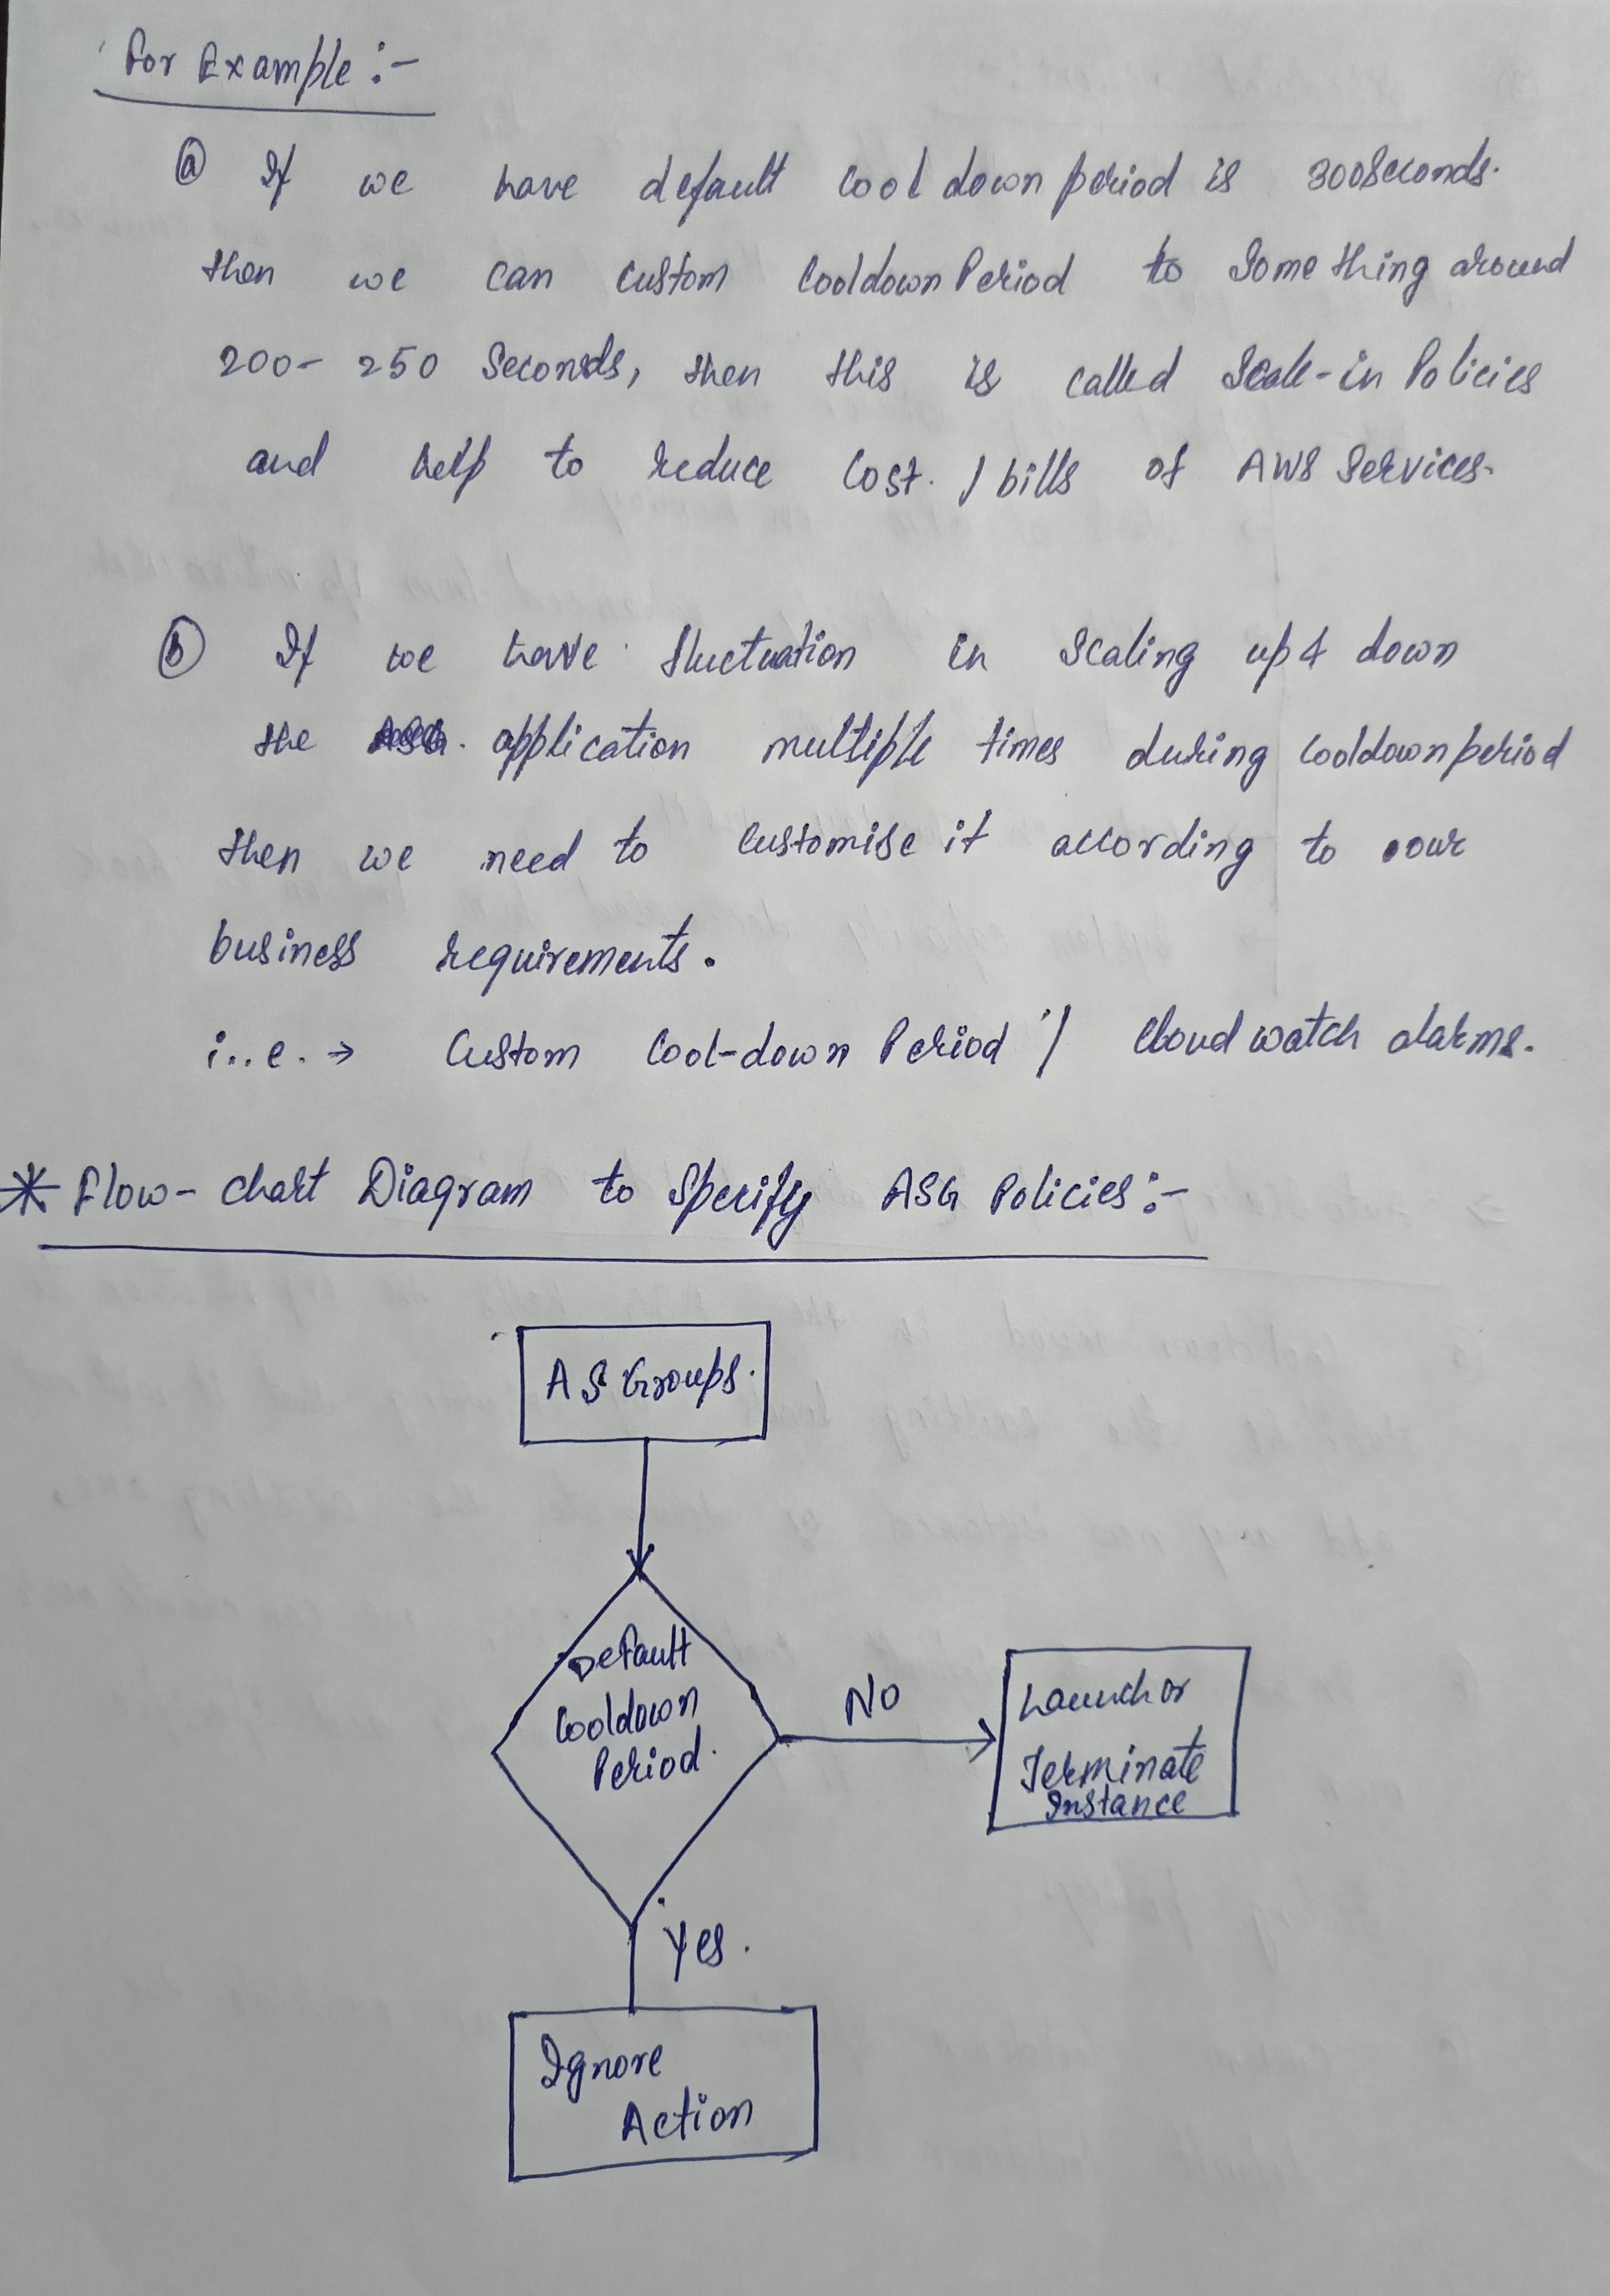 For Example :-
ⓐ If we have default Cool down period is 300Seconds.
then we can custom Cooldown Period to Something around
200- 250 Seconds, then this is called Scale-in Policies
and help to reduce Cost. / bills of AWS Services.
ⓑ If we have fluctuation in Scaling up & down
the application multiple times during Cooldown period
then we need to Customise it according to our
business requirements.
i..e. → Custom Cool-down Period / Cloud watch alarms.
* Flow- chart Diagram to Specify ASG Policies :-
AS Groups.
Default
Cooldown
Period.
No
Launch or
Terminate
Instance
Yes.
Ignore
Action